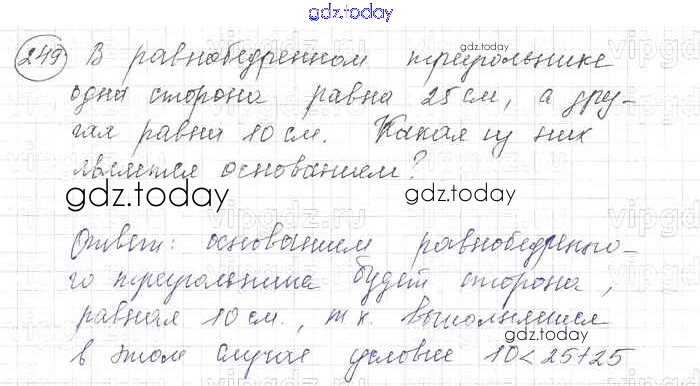 gdz.today
249 В равнобедренном треугольнике
gdz.today
одна сторона равна 25 см, а дру-
гая равна 10 см. Какая из них
является основанием?
gdz.today gdz.today
Ответ: основанием равнобедренно-
го треугольника будет сторона,
равная 10 см., т к. выполняется
gdz.today
в этом случае условие 10 < 25 + 25